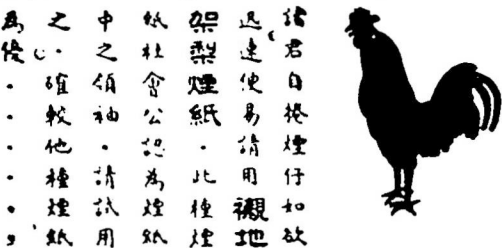 諸君自捲煙仔如欲
迅速便易請用襯地
架梨煙紙．此種煙
紙社會公認為煙紙
中之領袖．請試用
之．確較他種煙紙
為優．．．．．．